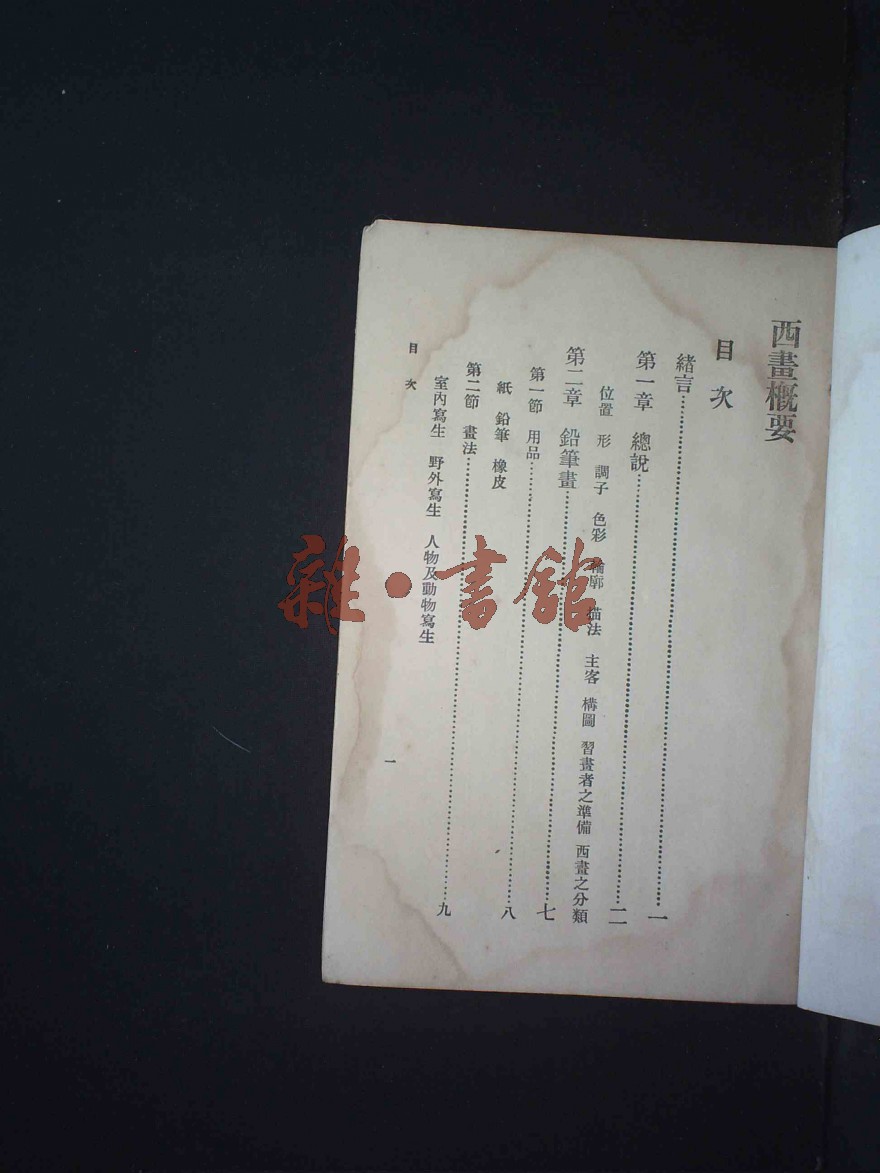 西畫概要
目次
緒言……一
第一章　總說……二
位置　形　調子　色彩　輪廓　描法　主客　構圖　習畫者之準備　西畫之分類
第二章　鉛筆畫……七
第一節　用品……八
紙　鉛筆　橡皮
第二節　畫法……九
室內寫生　野外寫生　人物及動物寫生
目次
一
雜·書館